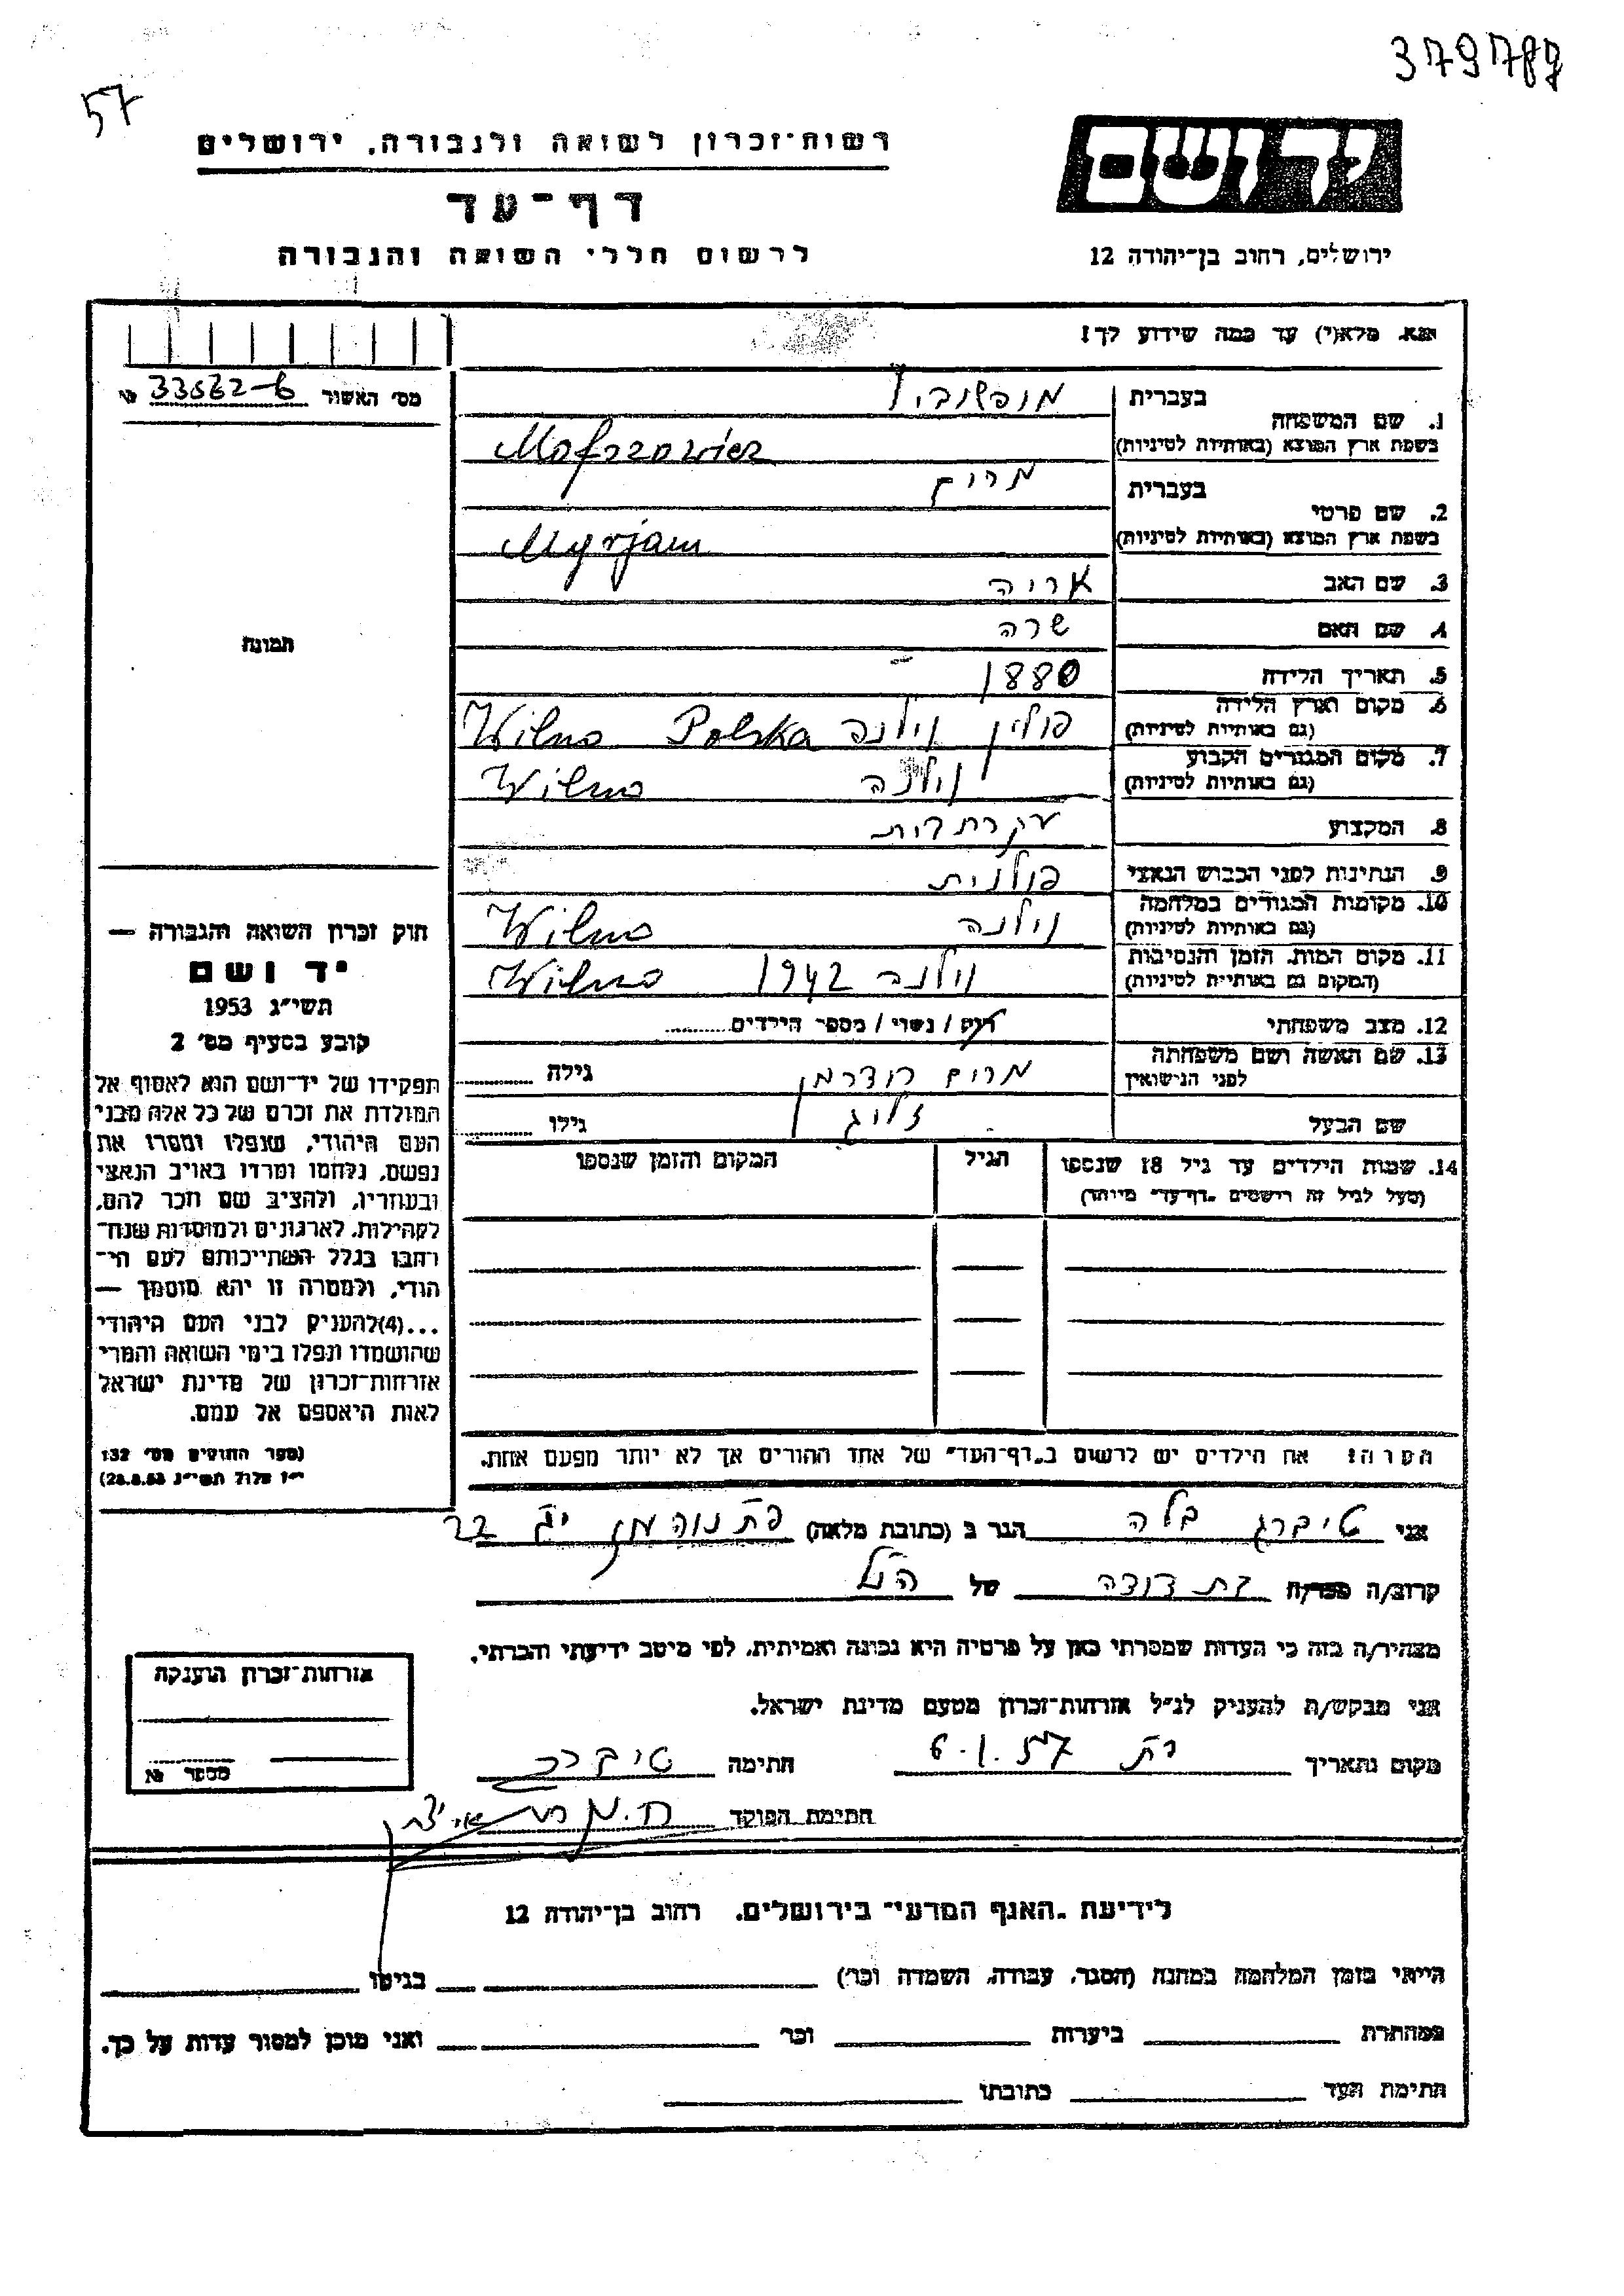 379787
57
יד ושם
ירושלים, רחוב בן־יהודה 12
רשות־זכרון לשואה ולגבורה, ירושלים
דף־עד
לרשום חללי השואה והגבורה
נא מלא(י) עד כמה שידוע לך!
מס׳ האשור 33532-6 №
תמונה
1. שם המשפחה
בעברית
מופשוביץ
בשפת ארץ המוצא (באותיות לטיניות)
Mofszowicz
2. שם פרטי
בעברית
מרים
בשפת ארץ המוצא (באותיות לטיניות)
Myrjam
3. שם האב אריה
4. שם האם שרה
5. תאריך הלידה 1880
6. מקום וארץ הלידה (גם באותיות לטיניות) פולין וילנה Wilno Polska
7. מקום המגורים הקבוע (גם באותיות לטיניות) וילנה Wilno
8. המקצוע עקרת בית
9. הנתינות לפני הכבוש הנאצי פולנית
10. מקומות המגורים במלחמה (גם באותיות לטיניות) וילנה Wilno
11. מקום המות, הזמן והנסיבות (המקום גם באותיות לטיניות) וילנה 1942 Wilno
12. מצב משפחתי רוק / נשוי / מספר הילדים
13. שם האשה ושם משפחתה לפני הנישואין מרים גילה
שם הבעל זליג גילו
14. שמות הילדים עד גיל 18 שנספו
(מעל לגיל זה רושמים "דף־עד" מיוחד)
הגיל
המקום והזמן שנספו
חוק זכרון השואה והגבורה —
יד ושם
תשי״ג 1953
קובע בסעיף מס׳ 2
תפקידו של יד־ושם הוא לאסוף אל
המולדת את זכרם של כל אלה מבני
העם היהודי, שנפלו ומסרו את
נפשם, נלחמו ומרדו באויב הנאצי
ובעוזריו, ולהציב שם וזכר להם,
לקהילות, לארגונים ולמוסדות שנח־
רבו בגלל השתייכותם לעם הי־
הודי, ולמטרה זו יהא מוסמך —
...(4)להעניק לבני העם היהודי
שהושמדו ונפלו בימי השואה והמרי
אזרחות־זכרון של מדינת ישראל
לאות היאספם אל עמם.
(ספר החוקים מס׳ 132
י״ז אלול תשי״ג 28.8.53)
הערה! את הילדים יש לרשום ב"דף־העד" של אחד ההורים אך לא יותר מפעם אחת.
אני טיברג בלה הגר ב (כתובת מלאה)
קרוב/ה מכר/ה בת דודה של הנ״ל
מצהיר/ה בזה כי העדות שמסרתי כאן על פרטיה היא נכונה ואמיתית, לפי מיטב ידיעתי והכרתי.
אני מבקש/ת להעניק לנ״ל אזרחות־זכרון מטעם מדינת ישראל.
מקום ותאריך 6.1.57 חתימה טיברג
חתימת הפוקד
אזרחות־זכרון הוענקה
מספר №
לידיעת "האגף המדעי" בירושלים, רחוב בן־יהודה 12
הייתי בזמן המלחמה במחנה (הסגר, עבודה, השמדה וכו׳) בגיטו
במחתרת ביערות וכו׳ ואני מוכן למסור עדות על כך.
חתימת העד כתובתו